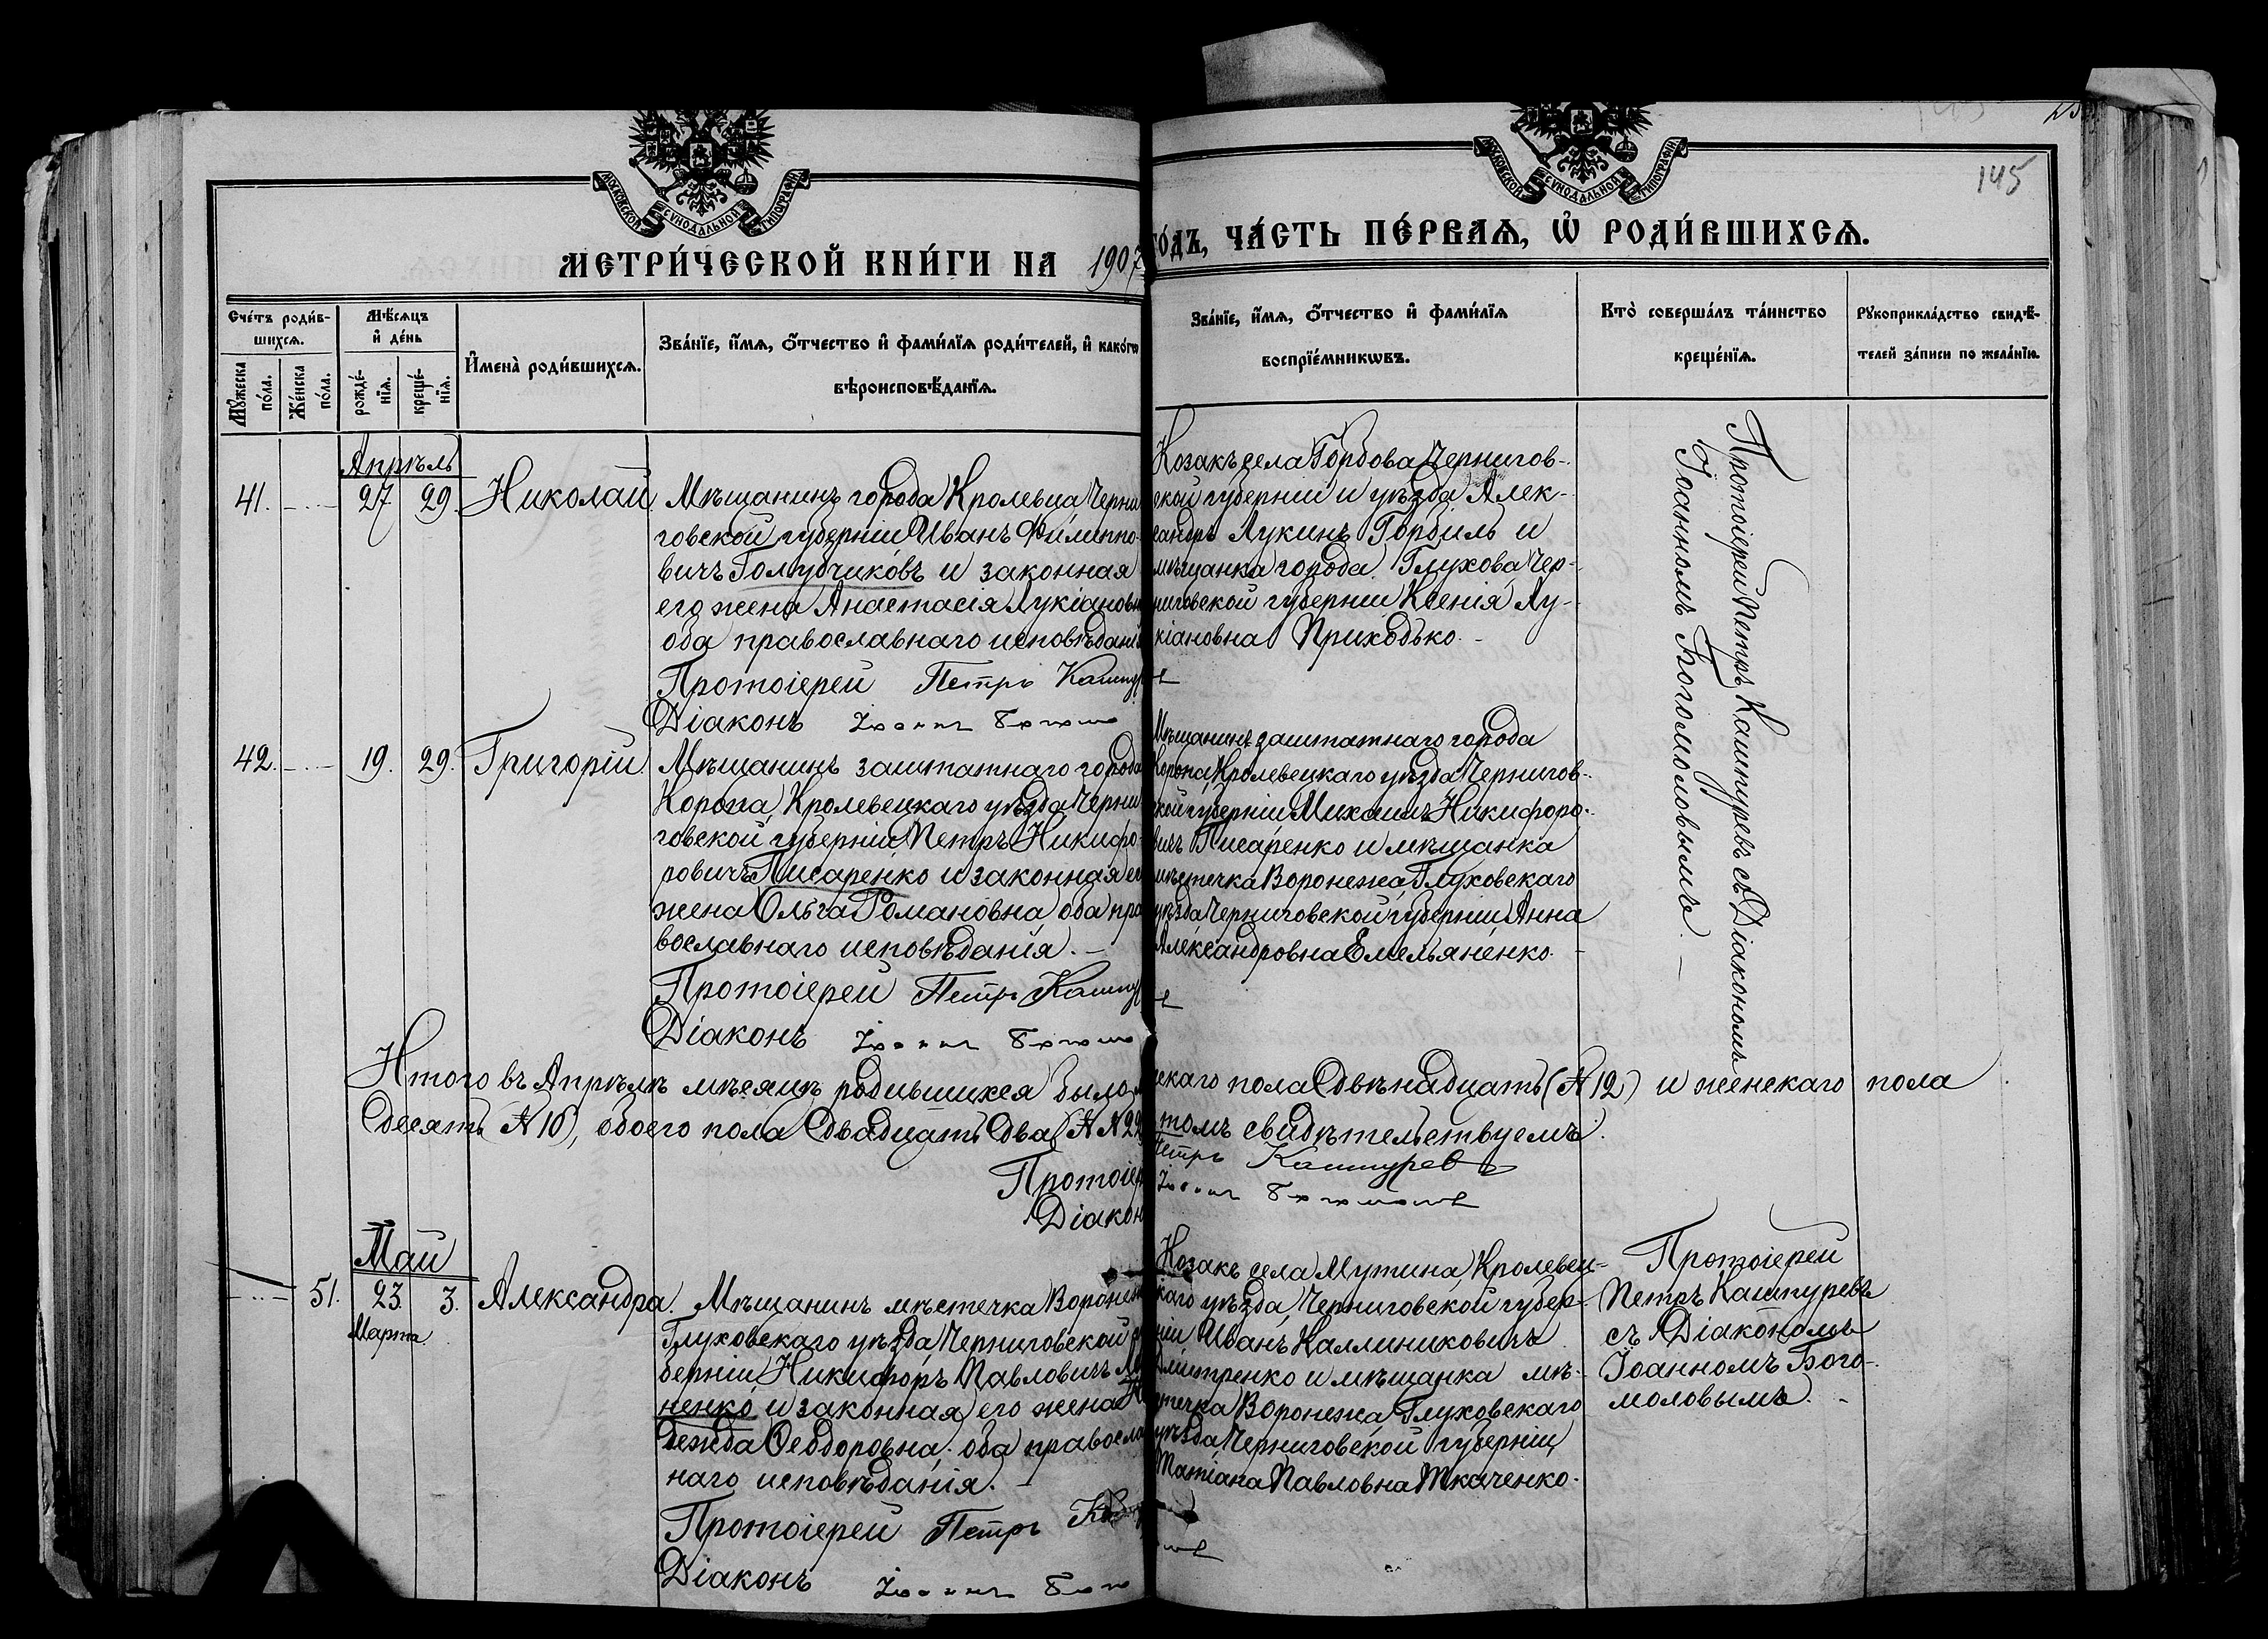 145
МОСКОВСКОЙ СѴНОДАЛЬНОЙ ТИПОГРАФІИ
МОСКОВСКОЙ СѴНОДАЛЬНОЙ ТИПОГРАФІИ
МЕТРИ́ЧЕСКОЙ КНИ́ГИ НА 1907
ГО́ДЪ, ЧА́СТЬ ПЕ́РВАѦ, Ѡ҆ РОДИ́ВШИХСѦ.
Сче́тъ роди́в-
шихсѧ.
Мꙋ́жеска по́ла.
Же́нска по́ла.
Мѣ́сѧцъ
и҆ де́нь
рожде́-
нїѧ.
креще́-
нїѧ.
И҆мена̀ роди́вшихсѧ.
Зва́нїе, и҆́мѧ, ѻ҆́тчество и҆ фами́лїѧ роди́телей, и҆ како́гѡ
вѣроисповѣ́данїѧ.
Зва́нїе, и҆́мѧ, ѻ҆́тчество и҆ фами́лїѧ
воспрїе́мникѡвъ.
Кто̀ соверша́лъ та́инство
креще́нїѧ.
Рꙋкоприкла́дство свидѣ́-
телей за́писи по жела́нїю.
Апрѣль
41. 27 29. Николай.
Мѣщанинъ города Кролевца, Черни
говской губерніи Иванъ Филиппо-
вичъ Голубчиковъ и законная
его жена Анастасія Лукіановн
оба православнаго исповѣдані
Протоіерей Петръ Кашпур
Діаконъ Іоаннъ Богомо
Козакъ села Горбова, Чернигов-
ской губерніи и уѣзда Алек-
сандръ Лукинъ Горбиль и
мѣщанка города Глухова, Чер-
ниговской губерніи Ксенія Лу-
кіановна Приходько.
Протоіерей Петръ Кашпуревъ съ Діакономъ
Іоанномъ Богомоловымъ.
42. 19. 29. Григорій.
Мѣщанинъ заштатнаго города
Коропа, Кролевецкаго уѣзда Черни
говской губерніи Петръ Никифо-
ровичъ Писаренко и законная ег
жена Ольга Романовна, оба пра
вославнаго исповѣданія.
Протоіерей Петръ Кашпур
Діаконъ Іоаннъ Богомо
Мѣщанинъ заштатнаго города
Коропа, Кролевецкаго уѣзда Чернигов-
ской губерніи Михаилъ Никифоро-
вичъ Писаренко и мѣщанка
мѣстечка Воронежа, Глуховскаго
уѣзда Черниговской губерніи Анна
Александровна Емельяненко.
Итого въ Апрѣлѣ мѣсяцѣ родившихся было м
скаго пола двѣнадцать (№ 12) и женскаго пола
десять (№ 10), обоего пола двадцать два (№№ 22
томъ свидѣтельствуемъ:
Протоіер
Петръ Кашпуревъ
Діакон
Іоаннъ Богомолов
Май
51. 23. 3. Александра.
Марта.
Мѣщанинъ мѣстечка Воронеж
Глуховскаго уѣзда, Черниговской гу
берніи Никифоръ Павловичъ
ненко и законная его жена На
дежда Ѳеодоровна, оба правосла
наго исповѣданія.
Протоіерей Петръ
Діаконъ Іоаннъ Бого
Козакъ села Мутина, Кролевец-
каго уѣзда, Черниговской губер-
ніи Иванъ Каллиниковичъ
Дмитренко и мѣщанка мѣ-
стечка Воронежа, Глуховскаго
уѣзда Черниговской губерніи
Татіана Павловна Ткаченко.
Протоіерей
Петръ Кашпуревъ
съ Діакономъ
Іоанномъ Бого-
моловымъ.